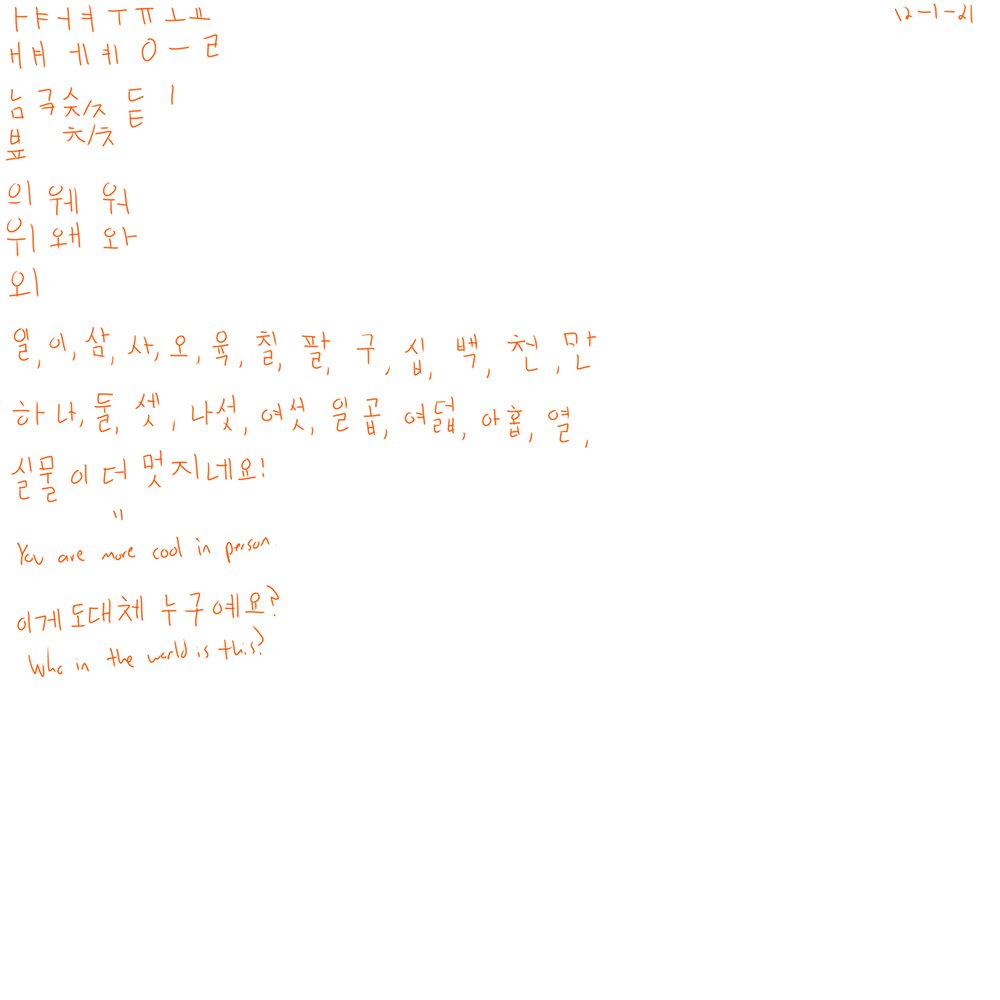 12-1-21
ㅏㅑㅓㅕㅜㅠㅗㅛ
ㅐㅒ ㅔㅖ ㅇㅡㄹ
ㄴㅁ ㄱㅋ ㅅㅈ/ㅈ ㄷㅌ ㅣ
ㅂㅍ ㅊ/ㅊ
의 웨 워
위 왜 와
외
일, 이, 삼, 사, 오, 육, 칠, 팔, 구, 십, 백, 천, 만
하나, 둘, 셋, 나섯, 여섯, 일곱, 여덟, 아홉, 열,
실물이 더 멋지네요!
"
You are more cool in person.
이게 도대체 누구예요?
Who in the world is this?